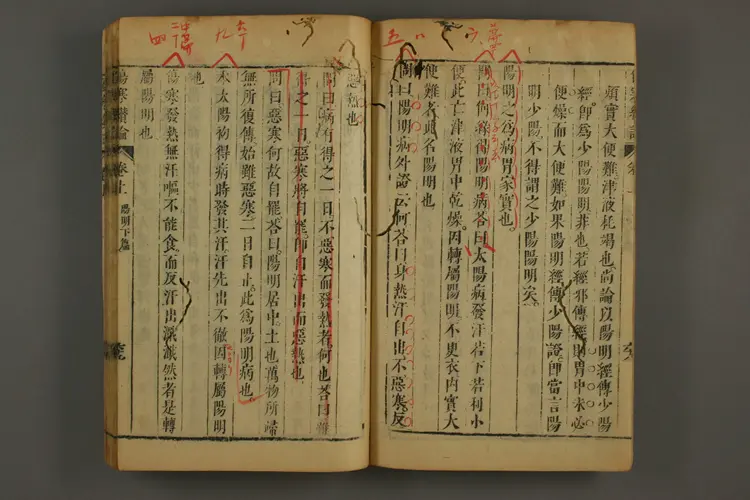 煩實大便難津液耗竭也尚論以陽明經傳少陽
經卽爲少陽陽明非也若經邪傳經則胃中未必
便燥而大便難如果陽明經傳少陽證卽當言陽
明少陽不得謂之少陽陽明矣
陽明之爲病胃家實也
問曰何緣得陽明病荅曰太陽病發汗若下若利小
便此亡津液胃中乾燥因轉屬陽明不更衣內實大
便難者此名陽明也
問曰陽明病外證云何荅曰身熱汗自出不惡寒反
惡熱也
問曰病有得之一日不惡寒而發熱者何也荅曰雖
得之一日惡寒將自罷卽自汗出而惡熱也
問曰惡寒何故自罷荅曰陽明居中土也萬物所歸
無所復傳始雖惡寒二日自止此爲陽明病也
本太陽初得病時發其汗汗先出不徹因轉屬陽明
也
傷寒發熱無汗嘔不能食而反汗出濈濈然者是轉
屬陽明也
卷十 陽明下篇